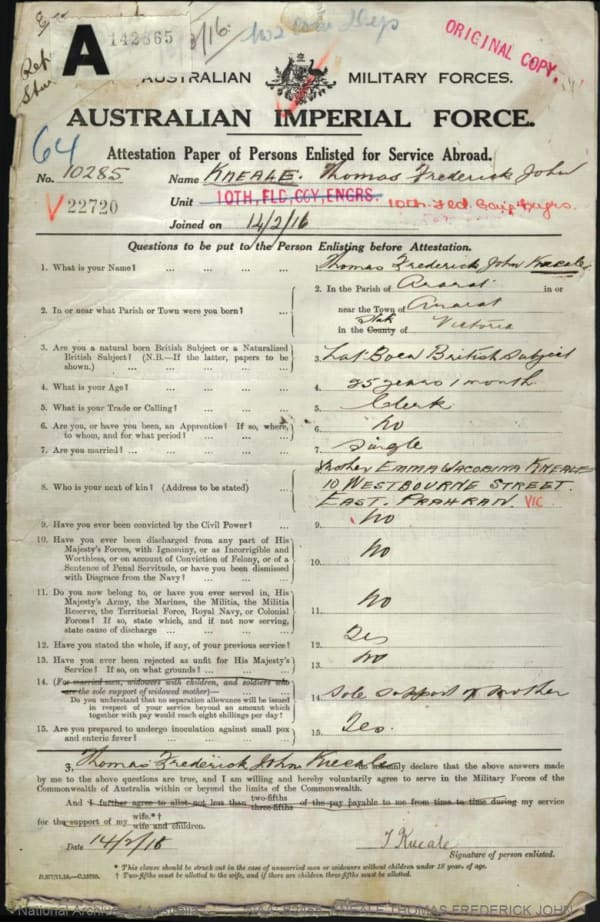 A
142865
ORIGINAL COPY.
AUSTRALIAN MILITARY FORCES.
AUSTRALIAN IMPERIAL FORCE.
64
Attestation Paper of Persons Enlisted for Service Abroad.
No. 10285 Name KNEALE. Thomas Frederick John
V 22720 Unit 10TH. FLD. COY. ENGRS. 10th. Fld. Coy. Engrs.
Joined on 14/2/16
Questions to be put to the Person Enlisting before Attestation.
1. What is your Name? ... ... ... ... 1. Thomas Frederick John Kneale
2. In or near what Parish or Town were you born? ... 2. In the Parish of Ararat in or
near the Town of Ararat
in the County of State Victoria
3. Are you a natural born British Subject or a Naturalized
British Subject? (N.B.—If the latter, papers to be
shown.) ... ... ... ... 3. Nat Born British Subject
4. What is your Age? ... ... ... ... 4. 25 years 1 month
5. What is your Trade or Calling? ... ... ... 5. Clerk
6. Are you, or have you been, an Apprentice? If so, where,
to whom, and for what period? ... ... 6. No
7. Are you married? ... ... ... ... 7. Single
8. Who is your next of kin? (Address to be stated) ... 8. Mother EMMA JACOBINA KNEALE
10 WESTBOURNE STREET.
EAST. PRAHRAN. VIC
9. Have you ever been convicted by the Civil Power? ... 9. No
10. Have you ever been discharged from any part of His
Majesty's Forces, with Ignominy, or as Incorrigible and
Worthless, or on account of Conviction of Felony, or of a
Sentence of Penal Servitude, or have you been dismissed
with Disgrace from the Navy? ... ... ... 10. No
11. Do you now belong to, or have you ever served in, His
Majesty's Army, the Marines, the Militia, the Militia
Reserve, the Territorial Force, Royal Navy, or Colonial
Forces? If so, state which, and if not now serving,
state cause of discharge ... ... ... ... 11. No
12. Have you stated the whole, if any, of your previous service? 12. Yes
13. Have you ever been rejected as unfit for His Majesty's
Service? If so, on what grounds? ... ... 13. No
14. (For married men, widowers with children, and soldiers who
are the sole support of widowed mother)—
Do you understand that no separation allowance will be issued
in respect of your service beyond an amount which
together with pay would reach eight shillings per day? 14. Sole support of mother
15. Are you prepared to undergo inoculation against small pox
and enteric fever? ... ... ... ... 15. Yes.
I, Thomas Frederick John Kneale do solemnly declare that the above answers made
by me to the above questions are true, and I am willing and hereby voluntarily agree to serve in the Military Forces of the
Commonwealth of Australia within or beyond the limits of the Commonwealth.
And I further agree to allot not less than two-fifths three-fifths of the pay payable to me from time to time during my service
for the support of my wife.*† wife and children.
Date 14/2/16 T Kneale
Signature of person enlisted.
* This clause should be struck out in the case of unmarried men or widowers without children under 18 years of age.
† Two-fifths must be allotted to the wife, and if there are children three-fifths must be allotted.